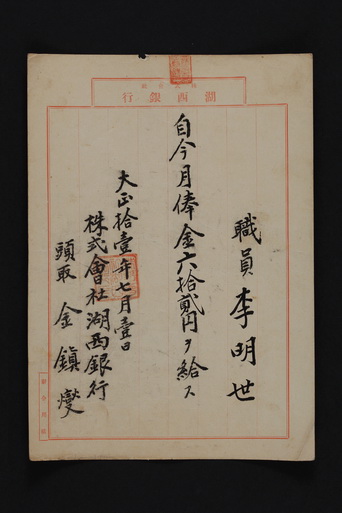 湖西銀行
職員 李明世
自今月俸金六拾貳円ヲ給ス
大正拾壹年七月壹日
株式會社湖西銀行
頭取 金鎭燮